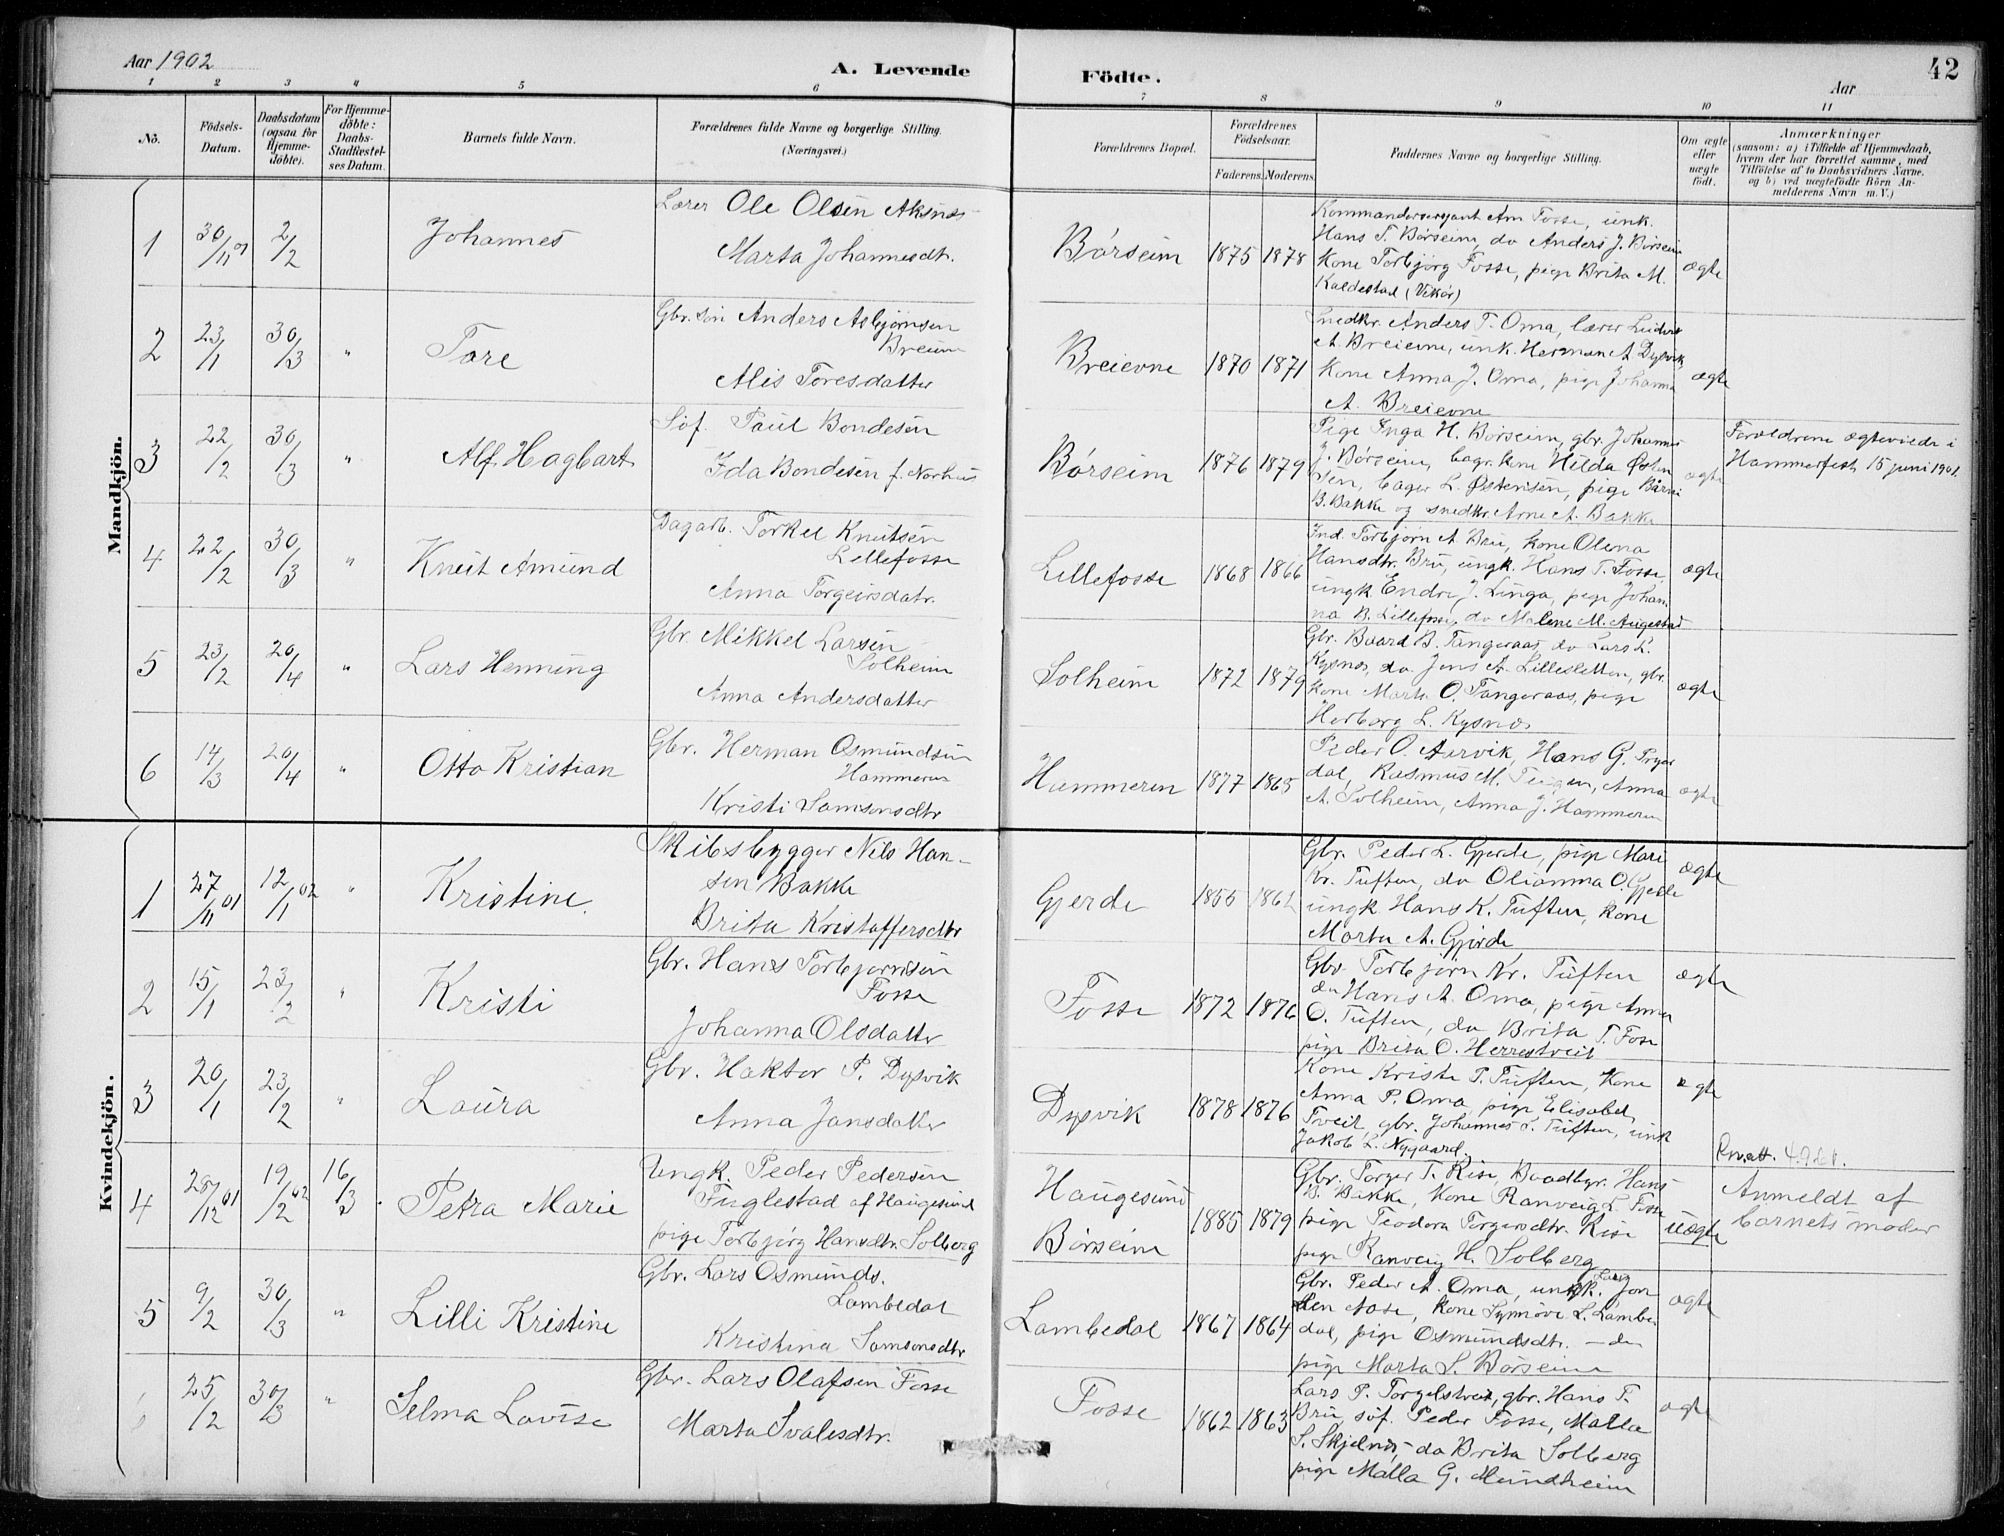 Aar 1902
A. Levende
Födte.
Aar
42
1 2 3 4 5 6 7 8 9 10 11
No.
Födsels-Datum.
Daabsdatum (ogsaa for Hjemmedöbte).
For Hjemmedöbte: Daabs-Stadfestelses Datum.
Barnets fulde Navn.
Forældrenes fulde Navne og borgerlige Stilling.
(Næringsvei.)
Forældrenes Bopæl.
Forældrenes Födselsaar.
Faderens. Moderens.
Faddernes Navne og borgerlige Stilling.
Om ægte eller uægte födt.
Anmærkninger
(saasom: a) i Tilfælde af Hjemmedaab, hvem der har forrettet samme, med Tilföielse af to Daabsvidners Navne, og b) ved uægtefödte Börn Anmelderens Navn m. V.)
Mandkjön.
1 30/11 01 2/2 Johannes
Lærer Ole Olsen Aksnes
Marta Johannesdt.
Børseim 1875 1878
Kommandersergjant Am Fosse, unk.
Hans T. Børseim, do Anders J. Børseim
Kone Torbjørg Fosse, pige Brita M.
Kaldestad (Vikør)
ægte
2 23/1 30/3 " Tore
Gbr. søn Anders Asbjørnsen
Breievne
Alis Toresdatter
Breievne 1870 1871
Snedkr. Anders T. Oma, lærer
A. Breievne, unk. Herman A Dysvik,
Kone Anna J. Oma, pige Johanna
A. Breievne
ægte
3 22/2 30/3 " Alf Hagbart
Søf. Paul Bondesen
Ida Bondesen f. Norhus
Børseim 1876 1879
Pige Inga H. Børseim, gbr. Johannes
J. Børseim, bagr. kone Hilda Østen
sen, bager L. Østensen, pige
B. Bakke og snedkr Arne A. Bakke
ægte
Forældrene ægteviede i
Hammerfest 15 juni 1901.
4 22/2 30/3 " Knut Amund
Dagarb. Torkel Knutsen
Lillefosse
Anna Torgeirsdatr.
Lillefosse 1868 1866
Ind. Torbjørn A Bru, kone Olena
Hansdtr. Bru, ungk. Hans T. Fosse,
ungk Endre J. Linga, pige Johan
na B. Lillefosse, do Malene M. Augestad
ægte
5 23/2 20/4 " Lars Henning
Gbr. Mikkel Larsen
Solheim
Anna Andersdatter
Solheim 1872 1879
Gbr. Baard B. Tangeraas, do Lars L.
Kysnes, do Jens A. Lillesletten, gbr.
kone Marta O. Tangeraas, pige
Herborg L. Kysnes
ægte
6 14/3 20/4 " Otto Kristian
Gbr. Herman Osmundsen
Hammeren
Kristi Samsonsdtr
Hammeren 1877 1865
Peder O. Aarvik, Hans G.
dal, Rasmus M. Teigen, Anna
A. Solheim, Anna J. Hammeren
ægte
Kvindekjön.
1 27/11 01 12/1 02 " Kristine.
Skibsbygger Nils Han-
sen Bakke
Brita Kristoffersdtr
Gjerde 1855 1862
Gbr. Peder L. Gjerde, pige Mari
Kr. Tuften, do Olianna O. Gjerde
ungk Hans K. Tuften, kone
Marta A. Gjerde
ægte
2 15/1 23/2 " Kristi
Gbr. Hans Torbjørnsen
Fosse
Johanna Olsdatter
Fosse 1872 1876
Gbr Torbjørn Kr. Tuften
do Hans A. Oma, pige Anna
O. Tuften, do Brita T. Fosse
pige Brita O. Herrestveit
ægte
3 20/1 23/2 " Laura
Gbr. Haktor P. Dysvik
Anna Jansdatter
Dysvik 1878 1876
Kone Kristi T. Tuften, Kone
Anna P. Oma, pige Elisabet
Tveit, gbr. Johannes L. Tuften, unk
Jakob L. Nygaard.
ægte
4 28/12 01 19/2 02 16/3 Petra Marie
Ungk. Peder Pedersen
Fuglestad af Haugesund
pige Torbjørg Hansdtr. Solberg
Haugesund
Børseim
1885 1879
Gbr. Torger T. Rise, Baadbyr. Hans
B. Bakke, Kone Ranveig L. Fosse
pige Teodora Torgersdtr. Rise
pige Ranveig H. Solberg
uægte
Anmeldt af
barnets moder
5 9/2 30/3 " Lilli Kristine
Gbr. Lars Osmunds.
Lambedal
Kristina Samsonsdtr
Lambedal 1867 1864
Gbr. Peder A. Oma, ungk. Jon
Aase, kone Synnøve L. Lambe
dal, pige Osmundsdtr. — do
pige Marta S. Børseim
ægte
25/2 30/3 " Selma Lovise
Gbr. Lars Olafsen Fosse
Marta Svalesdtr.
Fosse 1862 1863
Lars P. Torgelstveit, gbr. Hans T.
Bru, søf. Peder Fosse, Malla
S. Skjelnes, do Brita Solberg
pige Malla G. Mundheim
ægte